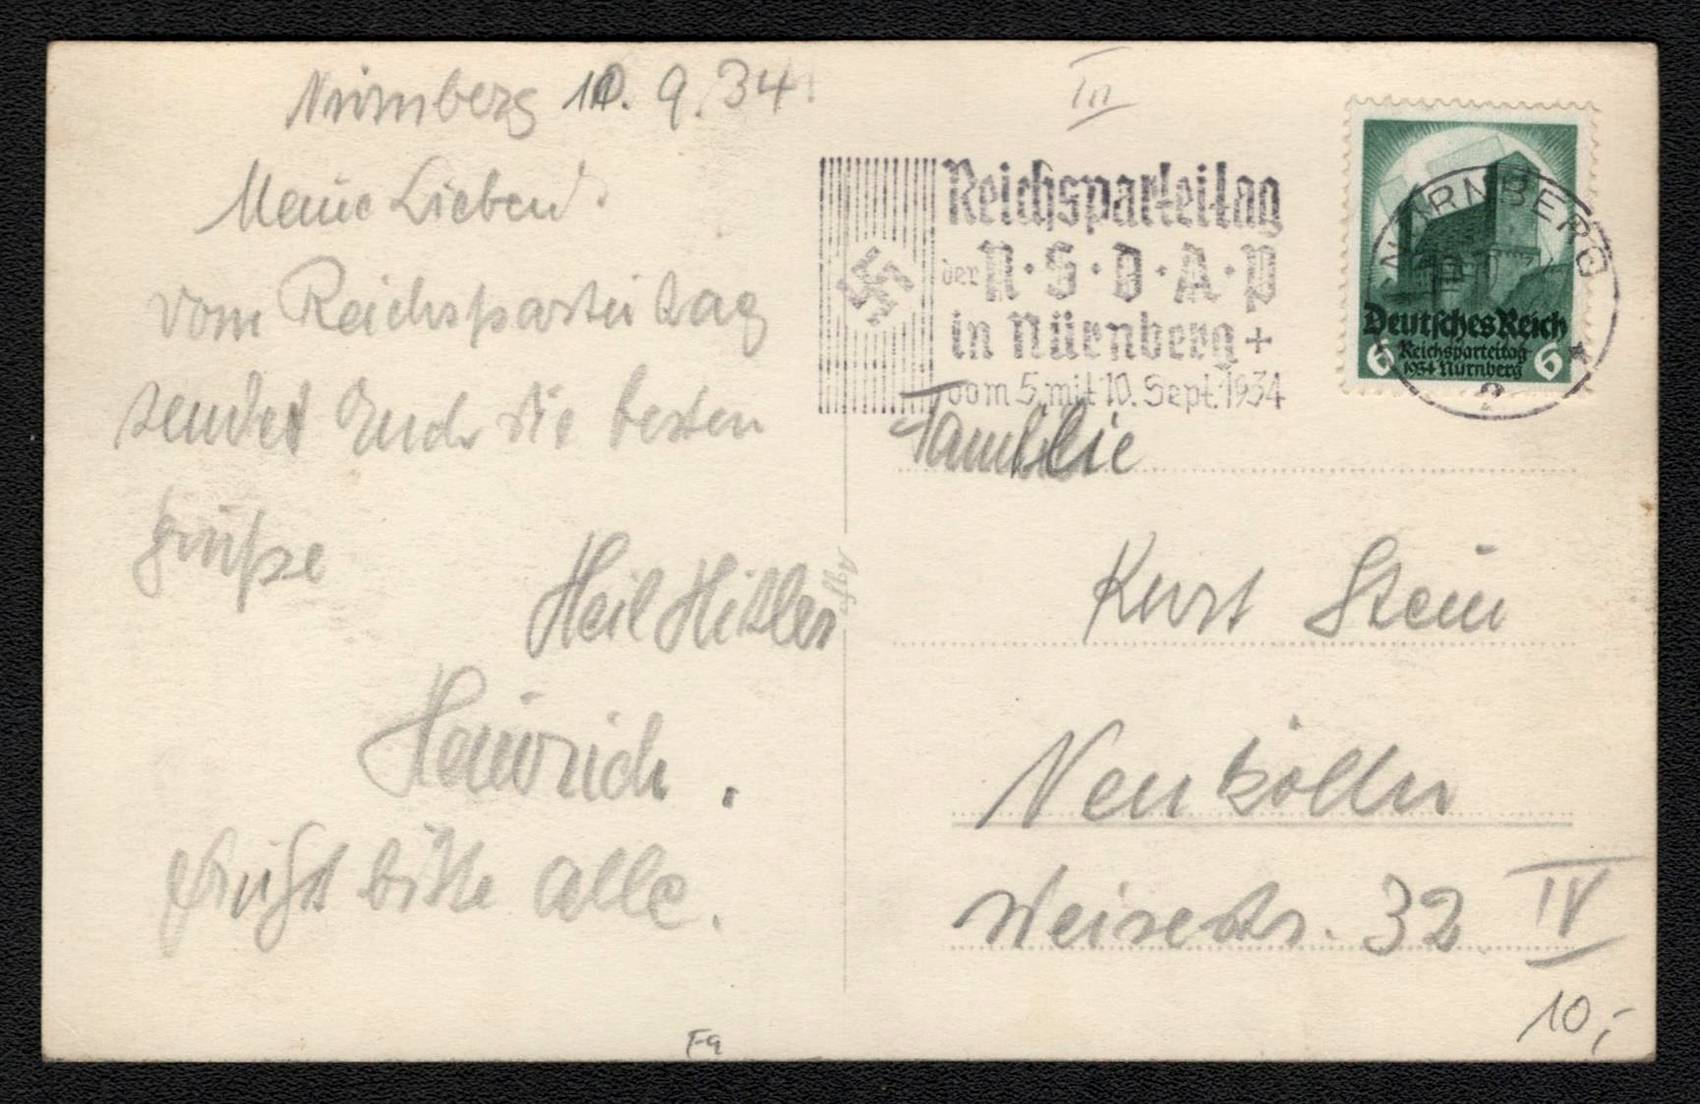 Nürnberg 10. 9. 34.
Meine Lieben!
vom Reichsparteitag
sendet Euch die besten
Grüße
Heil Hitler
Heinrich.
Grüßt bitte alle.
III
Reichsparteitag
der N·S·D·A·P
in Nürnberg +
vom 5. mit 10. Sept. 1934
NÜRNBERG
2
Deutsches Reich
6 Reichsparteitag 6
1934 Nürnberg
Familie
Kurt Stein
Neukölln
Weisestr. 32 IV
10,-
Agfa